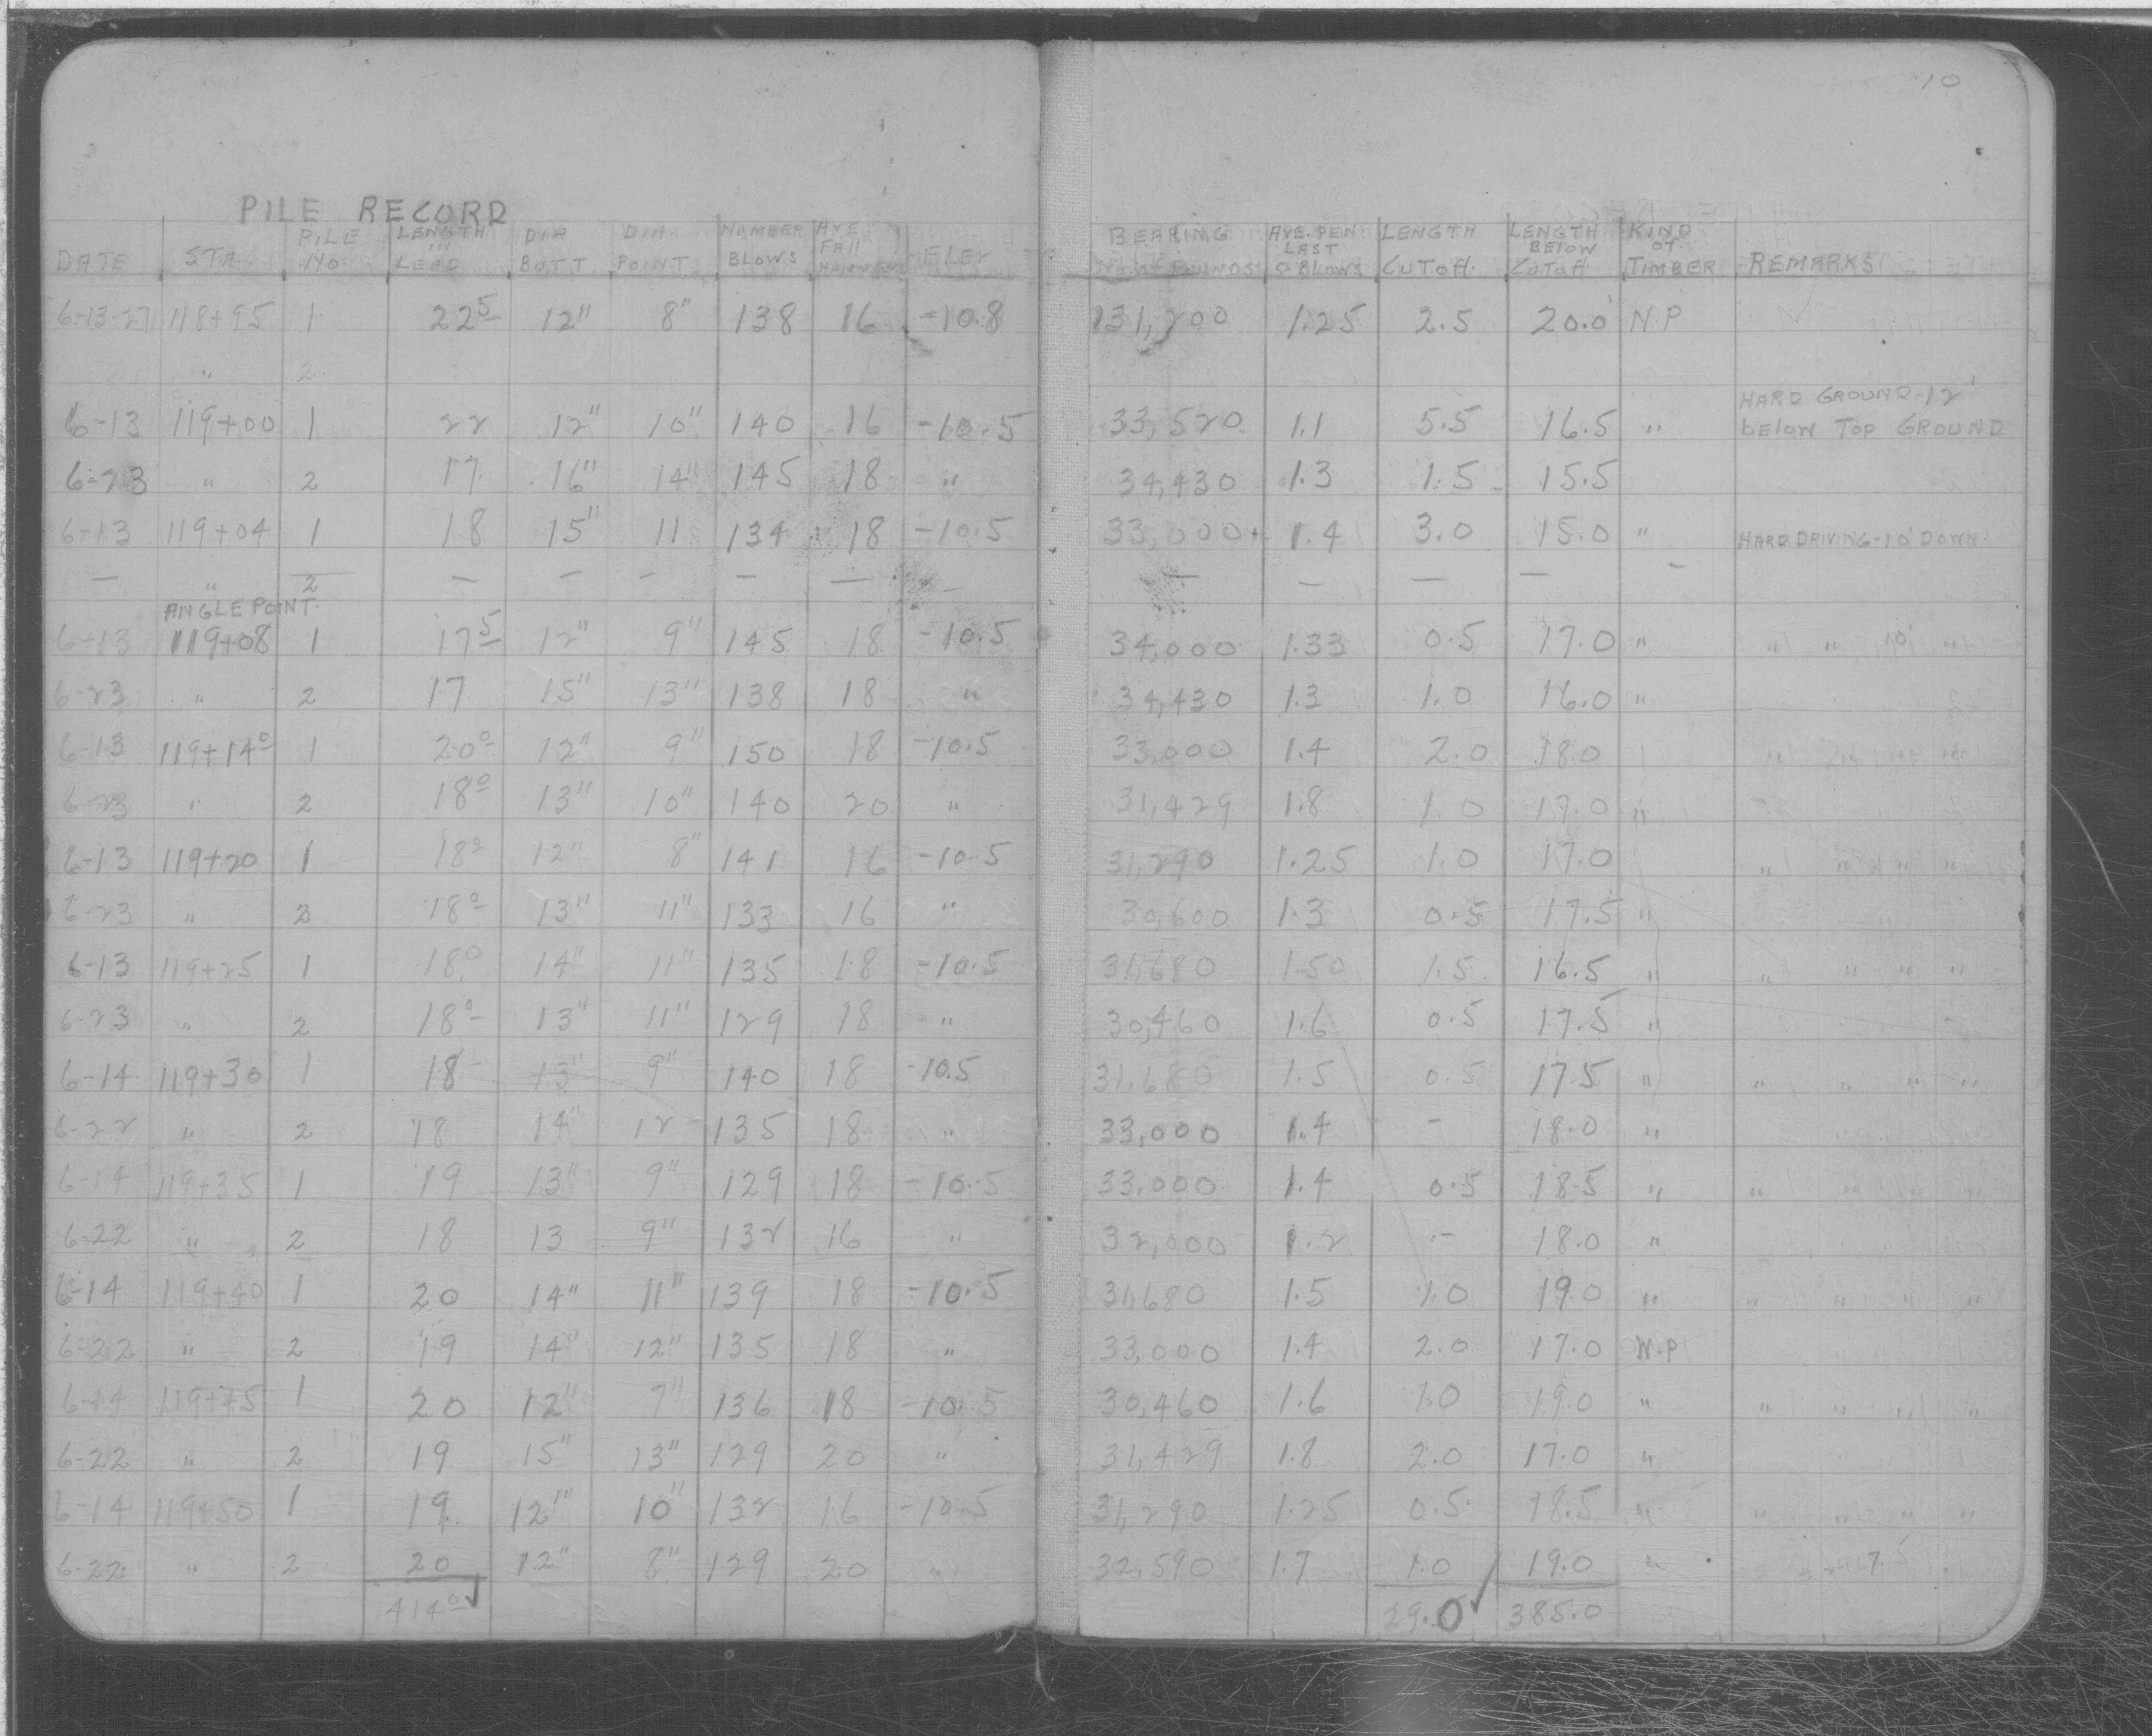 10
PILE RECORD
DATE STA. PILE No. LENGTH in LEAD DIA BUTT DIA POINT NUMBER BLOWS AVE FAll HAMMER ELEV BEARING No. of POUNDS AVE. PEN LAST 5 BLOWS LENGTH CUTOff. LENGTH BELOW CUTOff KIND of TIMBER REMARKS
6-13-27 118+95 1 22 5 12" 8" 138 16 -10.8 31,200 1.25 2.5 20.0' N.P
" 2
6-13 119+00 1 22 12" 10" 140 16 -10.5 33,520 1.1 5.5 16.5 " HARD GROUND-12' below Top GROUND
6-23 " 2 17 16" 14" 145 18 " 34,430 1.3 1.5 15.5
6-13 119+04 1 18 15" 11 134 18 -10.5 33,000 1.4 3.0 15.0 " HARD DRIVING-10' DOWN
— " 2 — — — — — — — — — — —
ANGLE POINT.
6-13 119+08 1 17 5 12" 9" 145 18 -10.5 34,000 1.33 0.5 17.0 " " " 10' "
6-23 " 2 17 15" 13" 138 18 " 34,430 1.3 1.0 16.0 "
6-13 119+14 0 1 20 0 12" 9" 150 18 -10.5 33,000 1.4 2.0 18.0 " " " "
6-23 " 2 18 0 13" 10" 140 20 " 31,429 1.8 1.0 17.0 "
6-13 119+20 1 18 0 12" 8" 141 16 -10.5 31,290 1.25 1.0 17.0 " " " "
6-23 " 2 18 0 13" 11" 133 16 " 30,600 1.3 0.5 17.5 "
6-13 119+25 1 18 0 14" 11" 135 18 -10.5 31,680 1.50 1.5 16.5 " " " " "
6-23 " 2 18 0 13" 11" 129 18 " 30,460 1.6 0.5 17.5 "
6-14 119+30 1 18 13" 9" 140 18 -10.5 31,680 1.5 0.5 17.5 " " " " "
6-22 " 2 18 14" 12 135 18 " 33,000 1.4 - 18.0 "
6-14 119+35 1 19 13" 9" 129 18 -10.5 33,000 1.4 0.5 18.5 " " " " "
6-22 " 2 18 13 9" 132 16 " 32,000 1.2 - 18.0 "
6-14 119+40 1 20 14" 11" 139 18 -10.5 31,680 1.5 1.0 19.0 " " " " "
6-22 " 2 19 14" 12" 135 18 " 33,000 1.4 2.0 17.0 N.P
6-14 119+45 1 20 12" 7" 136 18 -10.5 30,460 1.6 1.0 19.0 " " " " "
6-22 " 2 19 15" 13" 129 20 " 31,429 1.8 2.0 17.0 "
6-14 119+50 1 19. 12" 10" 132 16 -10.5 31,290 1.25 0.5 18.5 " " " " "
6-22 " 2 20 12" 8" 129 20 " 32,590 1.7 1.0 19.0 "
414 0 ✓ 29.0 ✓ 385.0